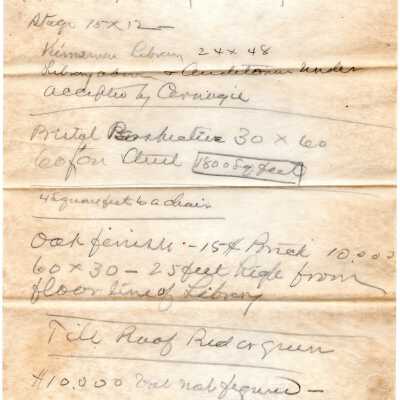 Stage 15 x 12 -
Library 24 x 48
Library above & Auditorium Under
accepted by Carnegie
30 x 60
60 ft on 1800 Sq feet
4 square feet to a chair
Oak finish - 15 ft Brick 10.000
60 x 30 - 25 feet high from
floor line of Library
Tile Roof Red or green
$10.000 not figured -